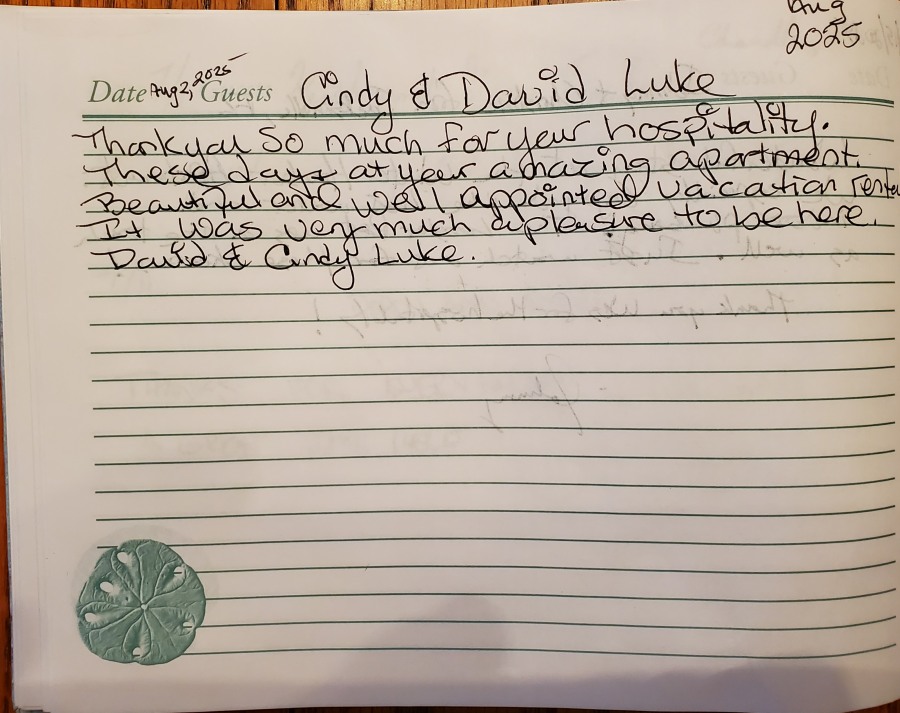 Aug
2025
Date Aug 2, 2025 Guests Cindy & David Luke
Thankyou So much for your hospitality.
These days at your amazing apartment.
Beautiful and well appointed vacation rental
It was very much a pleasure to be here.
David & Cindy Luke.
Thank you for the hospitality!